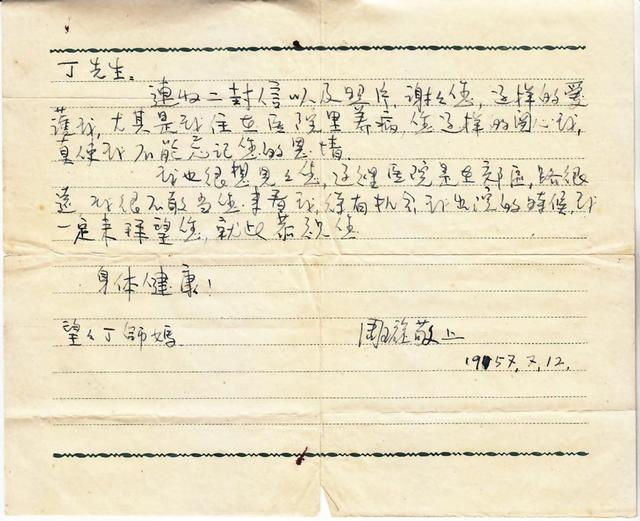 丁先生。
連收二封信以及照片，谢々您，这样的爱
護我，尤其是我住在医院里养病，您这样的関心我，
真使我不能忘记您的恩情。
我也很想見々您，这里医院是在郊區，路很
遠 我很不敢当您来看我，等有机会 我出院的時候，我
一定来探望您，就此恭祝您
身体健康！
望々丁師媽
敬上
1957.7.12.